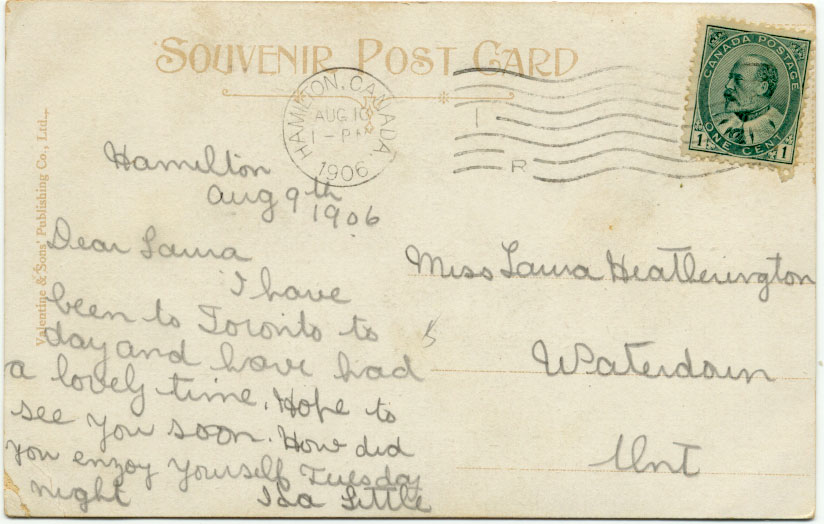 SOUVENIR POST CARD
HAMILTON, CANADA.
AUG 10
1 - PM
1906
I
R
CANADA POSTAGE
ONE CENT
1 1
Valentine & Sons' Publishing Co., Ltd.,
Hamilton
Aug 9th
1906
Dear Laura
I have
been to Toronto to
day and have had
a lovely time. Hope to
see you soon. How did
you enjoy yourself Tuesday
night Ida Little
Miss Laura Heatherington
Waterdown
Ont